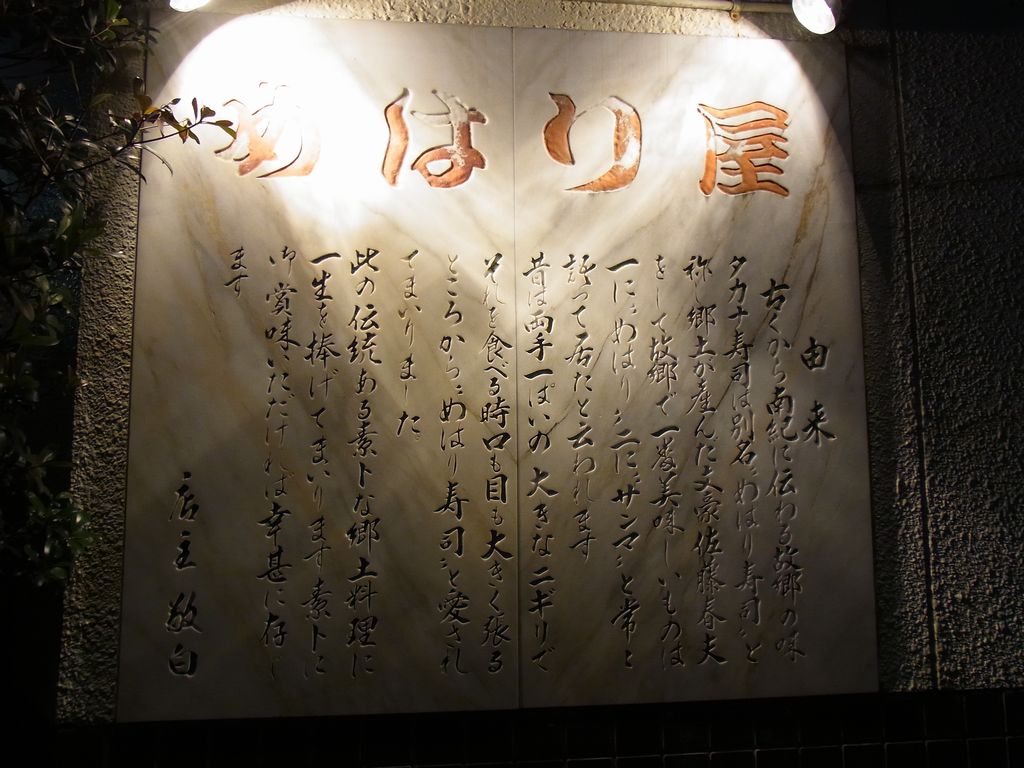 めはり屋
由来
古くから南紀に伝わる故郷の味
タカナ寿司は別名〝めはり寿司〟と
称し郷土が産んだ文豪佐藤春夫
をして故郷で一番美味しいものは
一に〝めはり〟二に〝サンマ〟と常に
語って居たと云われます
昔は両手一ぱいの大きなニギリで
それを食べる時口も目も大きく張る
ところから〝めはり寿司〟と愛され
てまいりました
此の伝統ある素卜な郷土料理に
一生を捧げてまいります素卜に
御賞味いただければ幸甚に存じ
ます
店主敬白